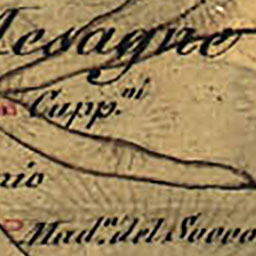 Mesagne
Capp.ni
Mad.a del Socco